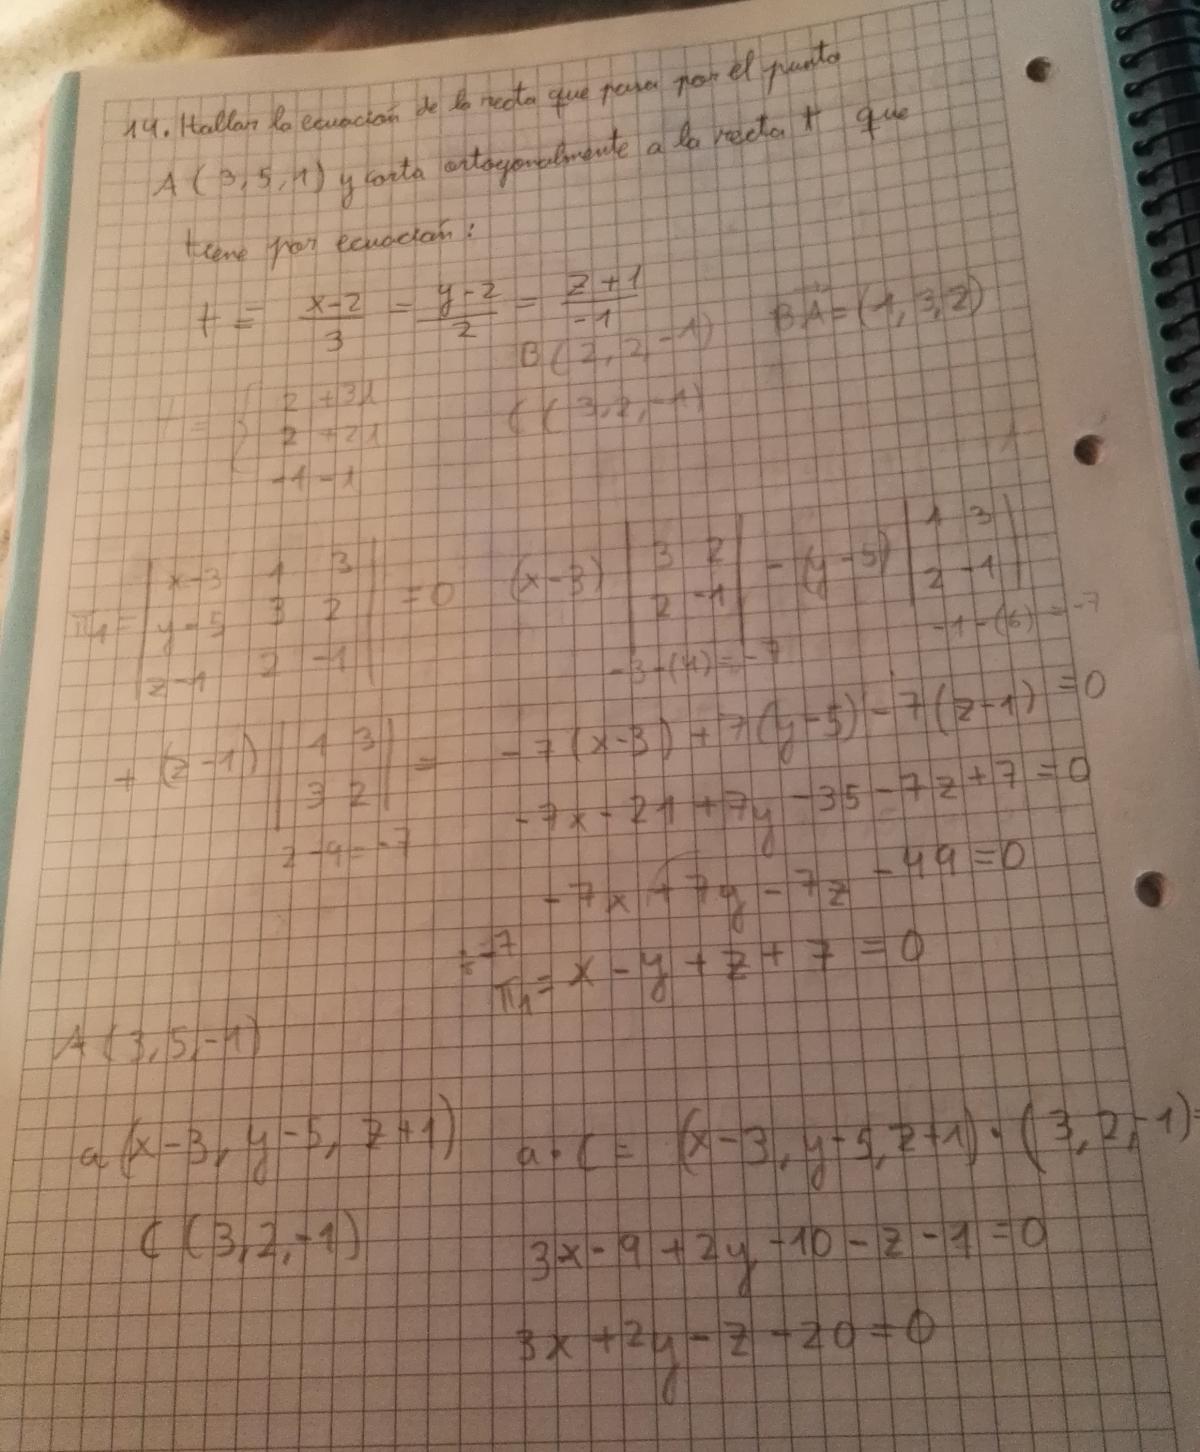 14. Hallar la ecuación de la recta que pasa por el punto
A (3,5,1) y corta ortogonalmente a la recta t que
tiene por ecuación:
t ≡ x-2/3 = y-2/2 = z+1/-1
B(2,2,-1) BA=(1,3,2)
t = { 2+3λ
2+2λ
-1-λ
C (3,2,-1)
π1= | x-3 1 3 | = 0
| y-5 3 2 |
| z-1 2 -1 |
(x-3) | 3 2 | - (y-5) | 1 3 |
| 2 -1 | | 2 -1 |
-3-(4)=-7 -1-(6)=-7
+ (z-1) | 1 3 | =
| 3 2 |
2-9=-7
-7(x-3)+7(y-5)-7(z-1)=0
-7x-21+7y-35-7z+7=0
-7x+7y-7z-49=0
÷-7
π1= x-y+z+7=0
A(3,5,-1)
a(x-3, y-5, z+1) a·C= (x-3, y-5, z+1)·(3,2,-1)=
C (3,2,-1)
3x-9+2y-10-z-1=0
3x+2y-z-20=0